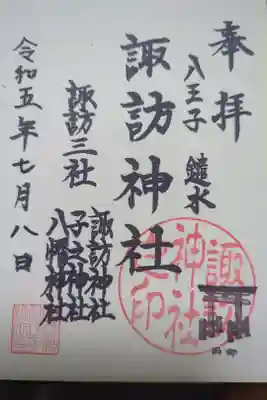 奉拝
八王子 鑓水
諏訪神社
諏訪三社
諏訪神社
子之神社
八幡神社
令和五年七月八日
諏訪
神社
之印